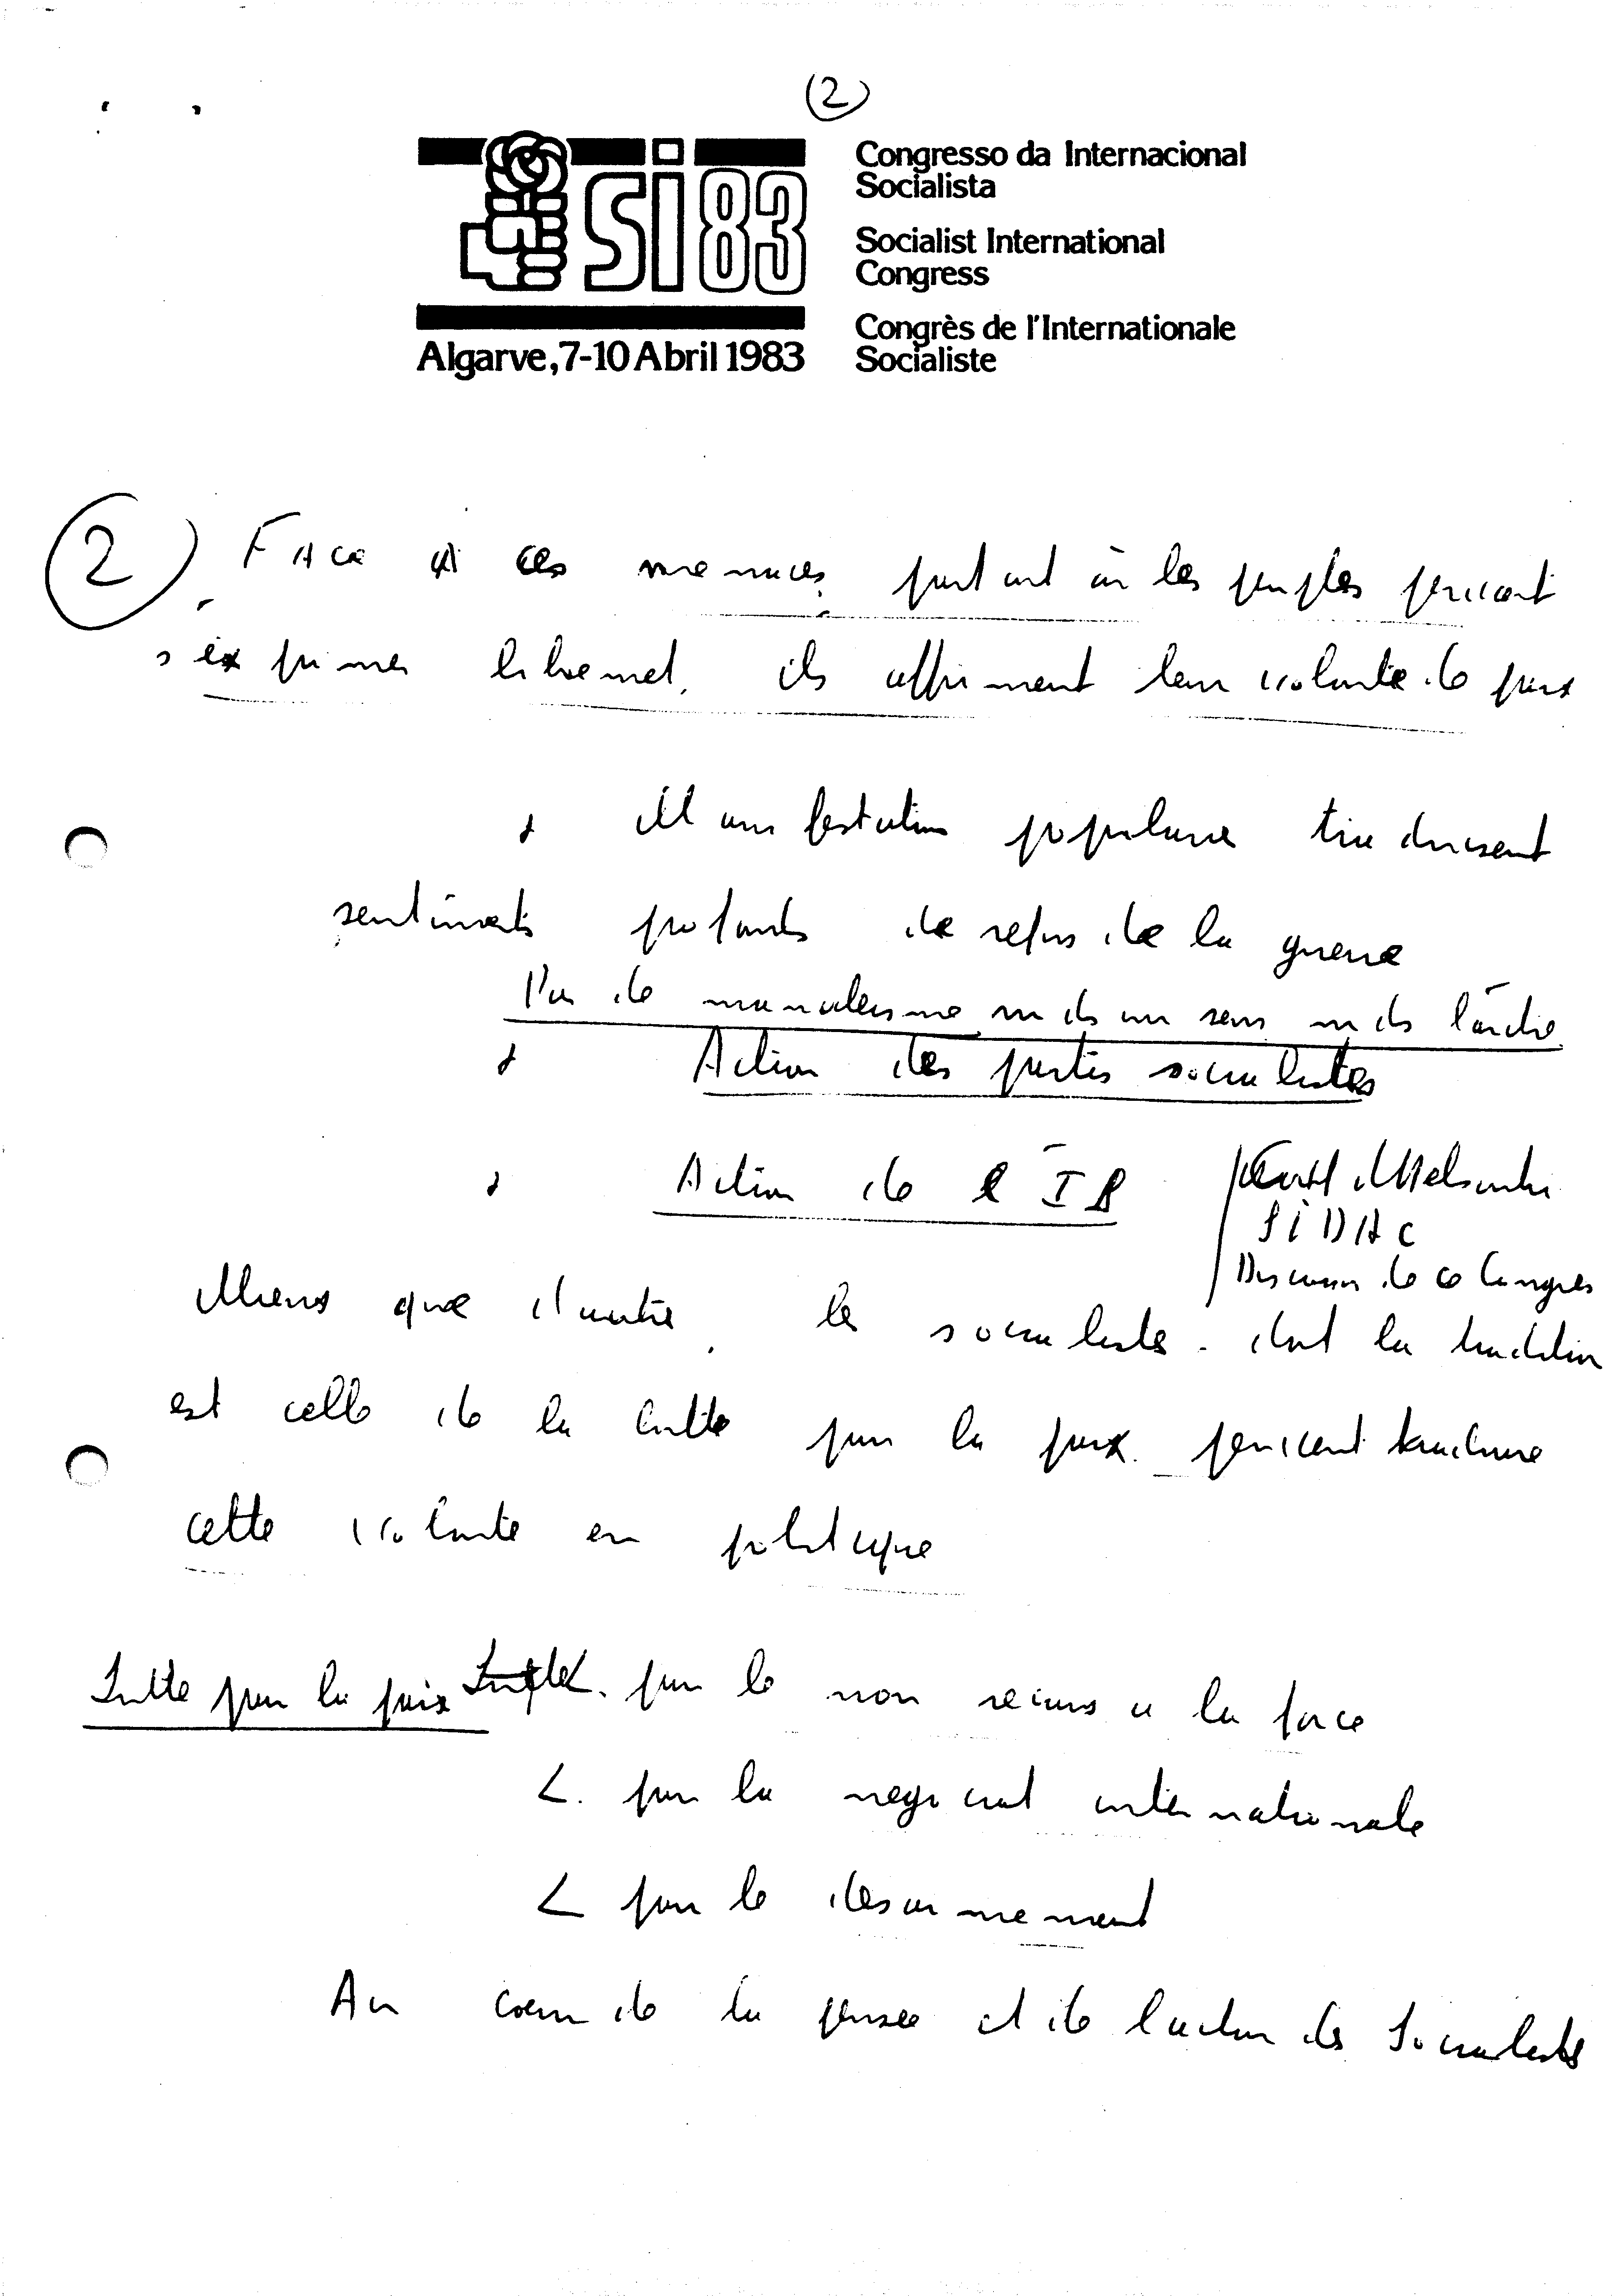 (2)
SI 83
Algarve, 7-10 Abril 1983
Congresso da Internacional
Socialista
Socialist International
Congress
Congrès de l'Internationale
Socialiste
(2) Face à ces menaces, partout où les peuples peuvent
s'exprimer librement, ils affirment leur volonté de paix
Manifestation populaire traduisent
sentiments profonds de refus de la guerre
Pas de manicheisme ni ds un sens ni ds l'autre
Action des partis socialistes
Action de l'IS
SIDAC
Discussion de ce Congrès
Mieux que d'autre, les socialistes - dont la tradition
est celle de la lutte pour la paix - peuvent traduire
cette volonté en politique
Lutte pour la paix . pour le non recours a la force
< . pour la negociat internationale
< pour le desarmement
Au coeur de la pensée et de l'action des Socialistes